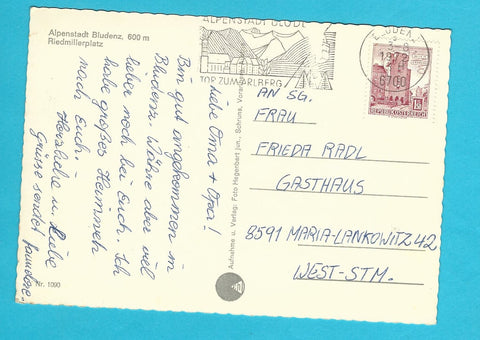 Alpenstadt Bludenz, 600 m
Riedmillerplatz
Liebe Oma + Opa!
Bin gut angekommen in
Bludenz. Wäre aber viel
lieber noch bei Euch. Ich
habe großes Heimweh
nach Euch.
Herzliche u. Liebe
Grüße sendet
Nr. 1090
Aufnahme u. Verlag: Foto Hegenbart jun., Schruns, Vorarlberg
ALPENSTADT BLUDENZ
TOR ZUM ARLBERG
BLUDENZ
1973
6700
REPUBLIK ÖSTERREICH
AN SG.
FRAU
FRIEDA RADL
GASTHAUS
8591 MARIA-LANKOWITZ 42
WEST-STM.